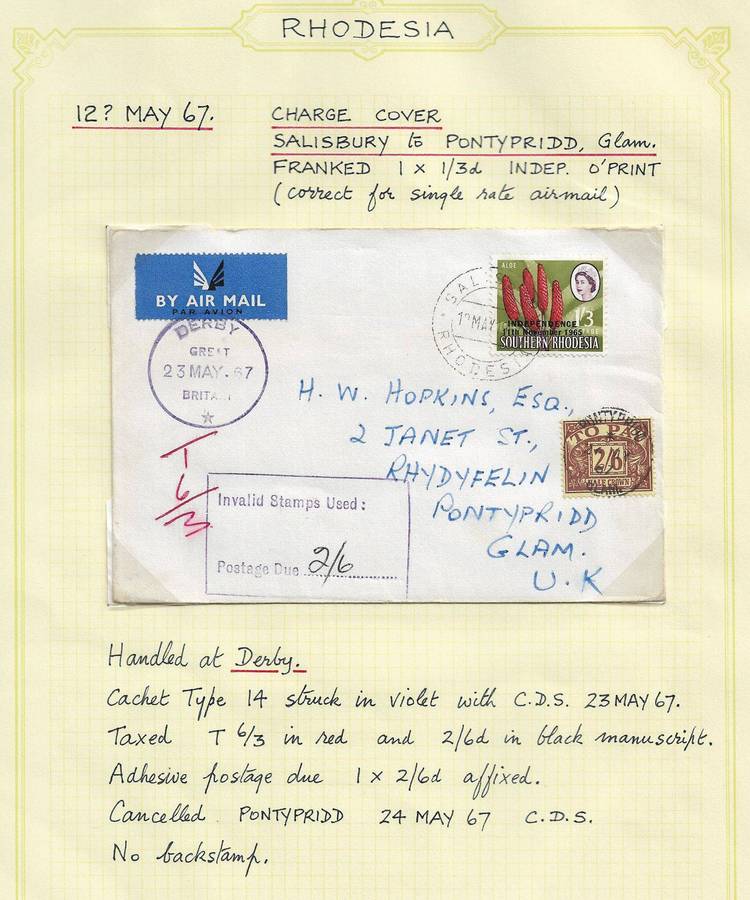 RHODESIA
12? MAY 67.
CHARGE COVER
SALISBURY to PONTYPRIDD, Glam.
FRANKED 1 x 1/3d INDEP. O'PRINT
(correct for single rate airmail)
BY AIR MAIL
PAR AVION
ALOE
1/3
INDEPENDENCE
11th November 1965
SOUTHERN RHODESIA
MAY
RHODESIA
DERBY
GREAT
23 MAY. 67
BRITAIN
H. W. HOPKINS, ESQ.,
2 JANET ST.,
RHYDYFELIN
PONTYPRIDD
GLAM.
U.K
TO PAY
2/6
HALF CROWN
PONTYPRIDD
T
6/3
Invalid Stamps Used:
Postage Due 2/6
Handled at Derby.
Cachet Type 14 struck in violet with C.D.S. 23 MAY 67.
Taxed T 6/3 in red and 2/6d in black manuscript.
Adhesive postage due 1 x 2/6d affixed.
Cancelled PONTYPRIDD 24 MAY 67 C.D.S.
No backstamp.